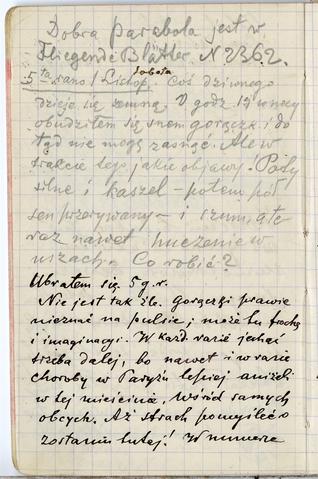 Dobra parabola jest w
Fliegende Blätter. N 2362.
sobota
5ta rano / Listop. Coś dziwnego
dzieje się zemną. O godz. 12 w nocy
obudziłem się snem gorączk. i do
tąd nie mogę zasnąć. Ale w
trakcie tego jakie objawy! Poty
silne i kaszel – potem pół
sen przerywany – i szum, a te
raz nawet huczenie w
uszach. – Co robić?
Ubrałem się. 5 g. r.
Nie jest tak źle. Gorączki prawie
nieznać na pulsie; może tu trochę
i imaginacyi. W każd. razie jechać
trzeba dalej, bo nawet i w razie
choroby w Paryżu lepiej aniżeli
w tej mieścinie, wśród samych
obcych. Aż strach pomyśleć o
zostaniu tutaj! W numerze